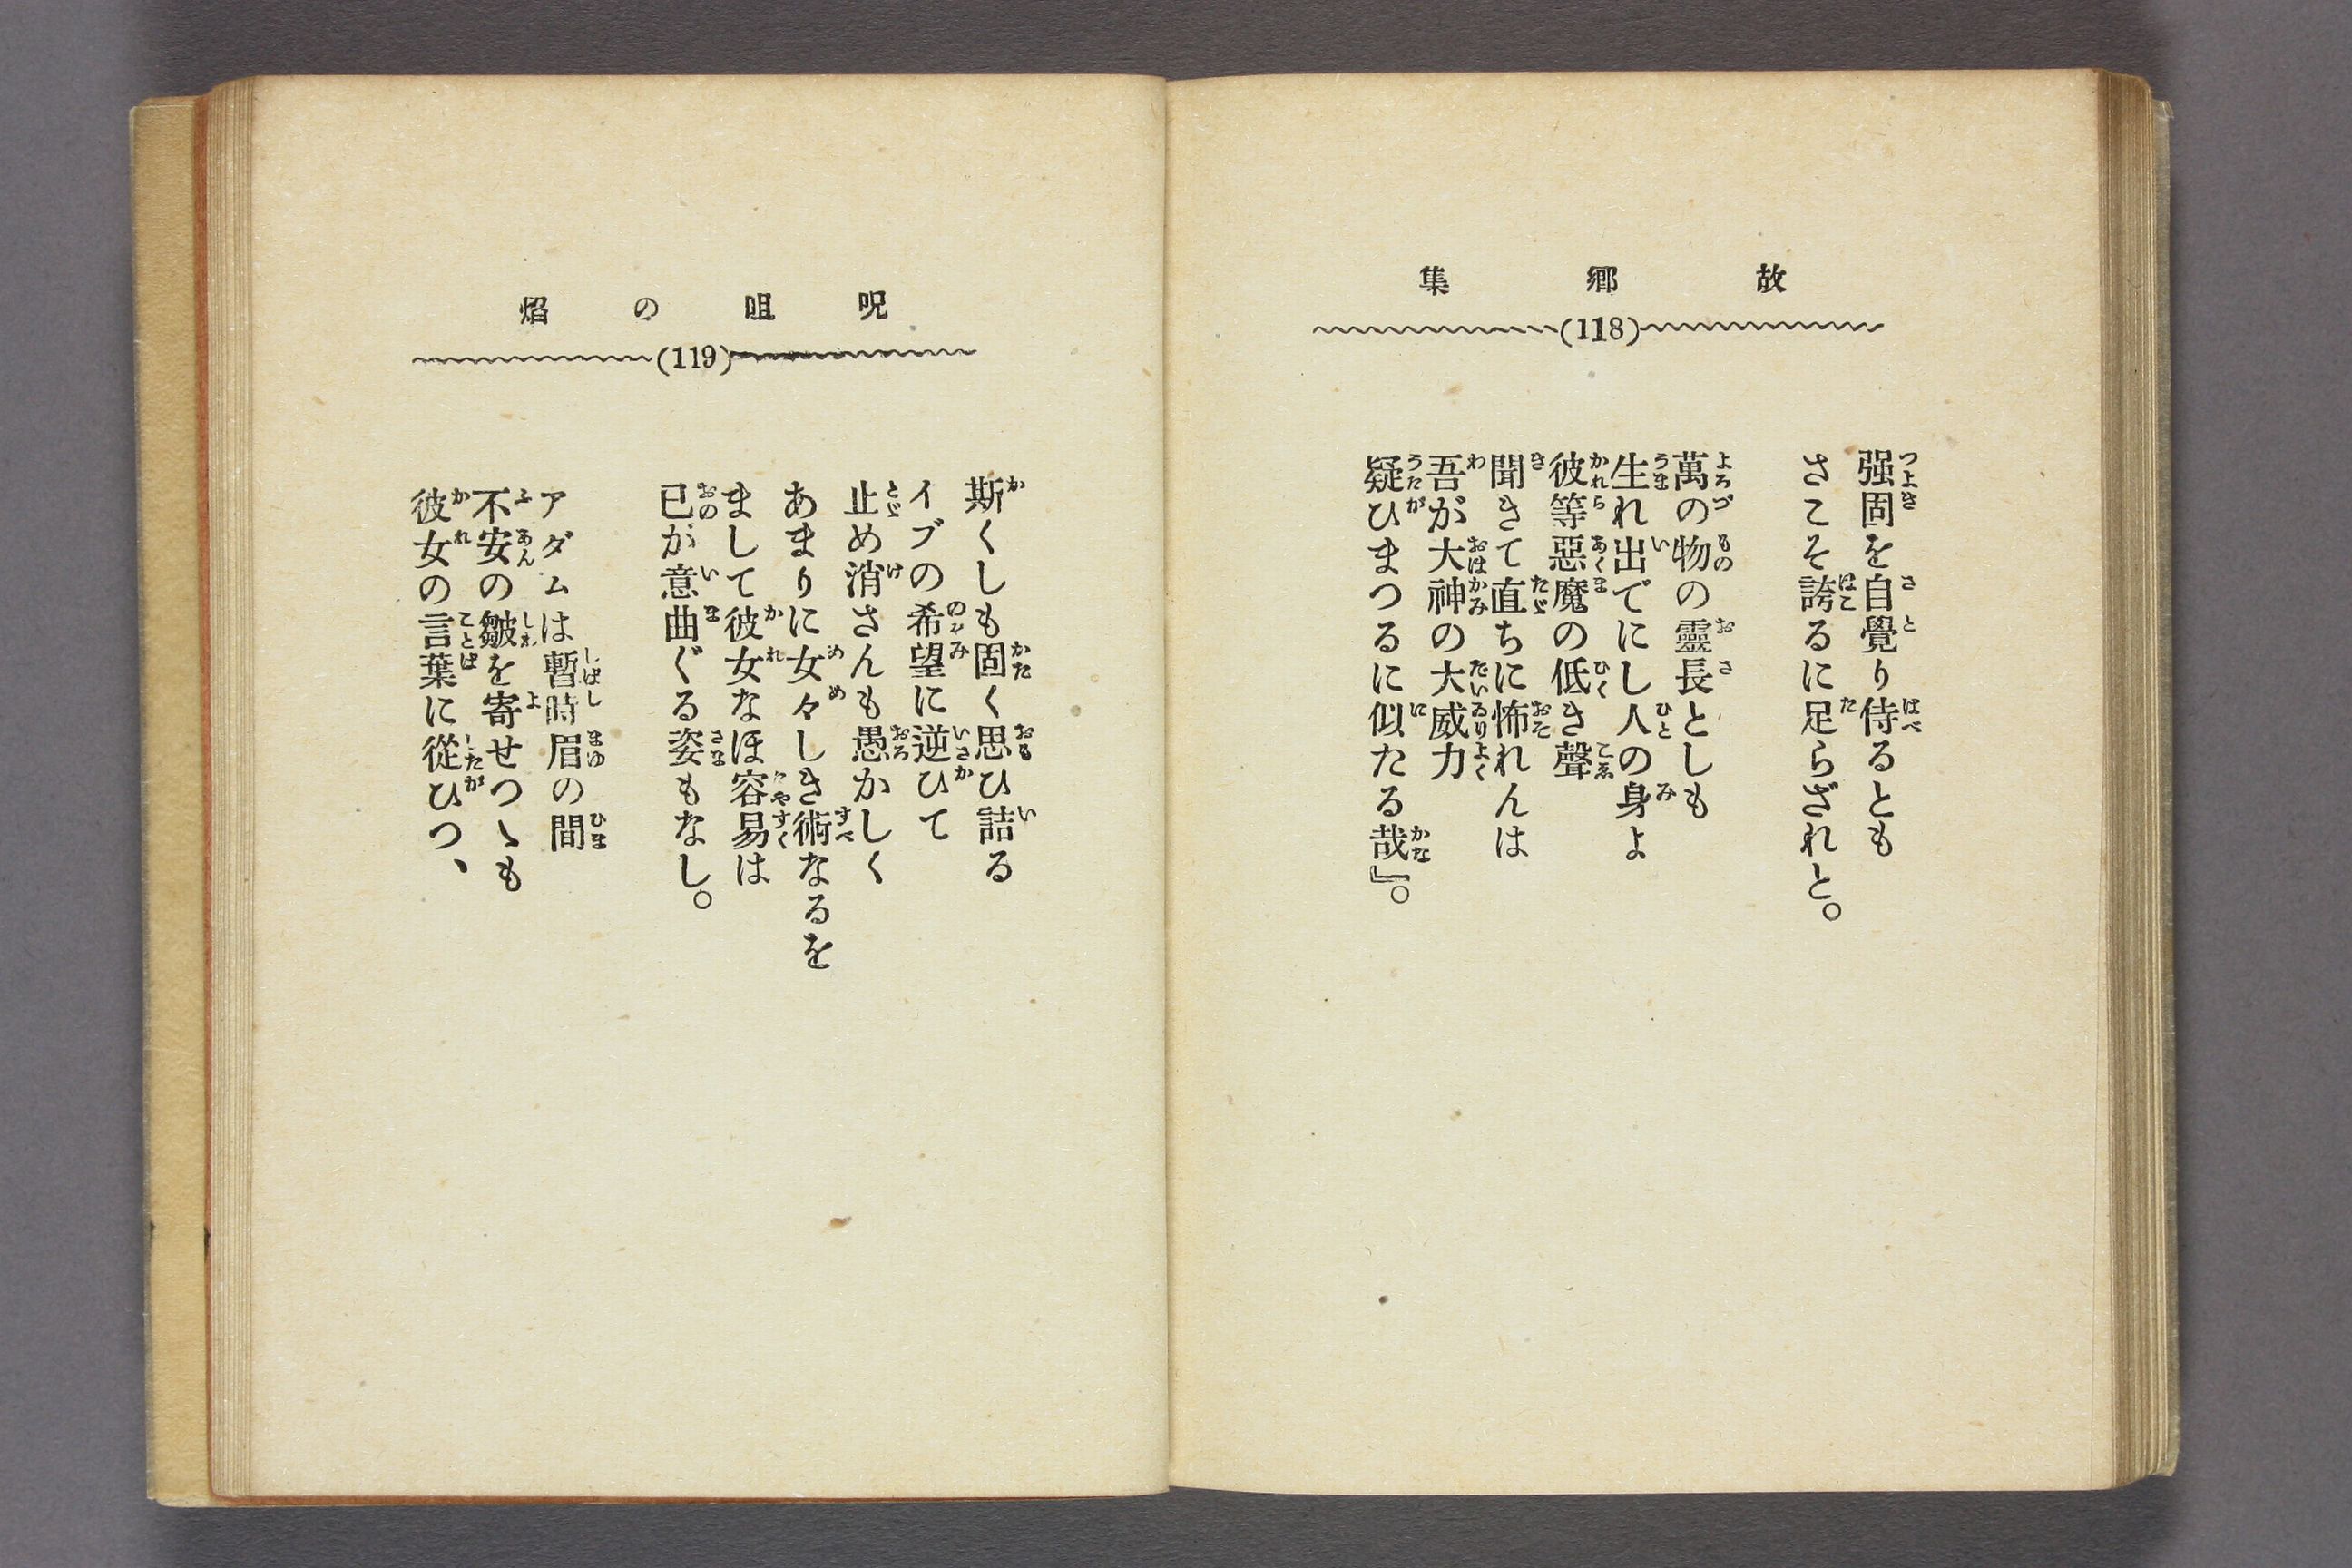 故郷集
(118)
强固を自覺り侍るとも
さこそ誇るに足らざれと。
萬の物の靈長としも
生れ出でにし人の身よ
彼等惡魔の低き聲
聞きて直ちに怖れんは
吾が大神の大威力
疑ひまつるに似たる哉』。
呪咀の焰
(119)
斯くしも固く思ひ詰る
イブの希望に逆ひて
止め消さんも愚かしく
あまりに女々しき術なるを
まして彼女なほ容易は
已が意曲ぐる姿もなし。
アダムは暫時眉の間
不安の皺を寄せつゝも
彼女の言葉に從ひつ、